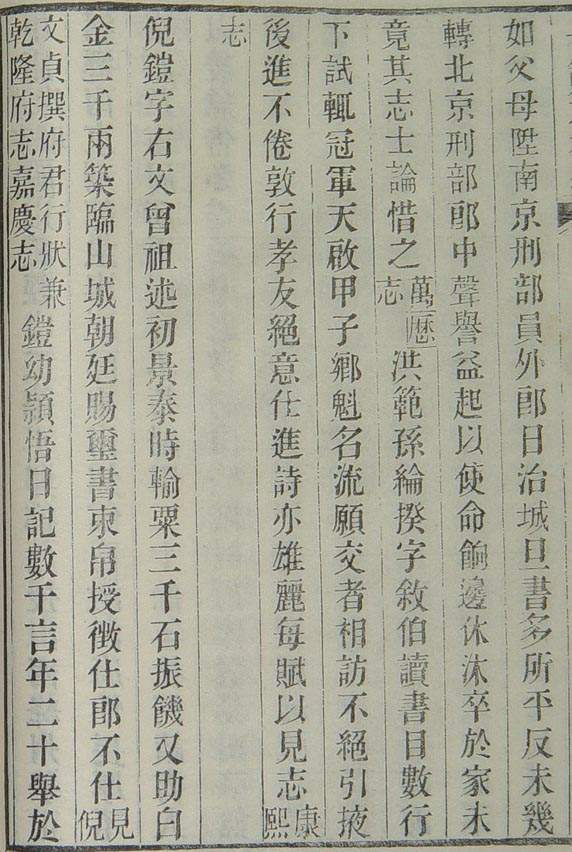 如父母陞南京刑部員外郎日治城旦書多所平反未幾
轉北京刑部郎中聲譽益起以使命餉邊休沐卒於家未
竟其志士論惜之萬曆志洪範孫綸揆字敘伯讀書目數行
下試輒冠軍天啟甲子鄉魁名流願交者相訪不絕引掖
後進不倦敦行孝友絕意仕進詩亦雄麗每賦以見志康熙
志
倪鎧字右文曾祖述初景泰時輸粟三千石振饑又助白
金三千兩築臨山城朝廷賜璽書束帛授徵仕郎不仕見倪
文貞撰府君行狀兼乾隆府志嘉慶志鎧幼穎悟日記數千言年二十舉於